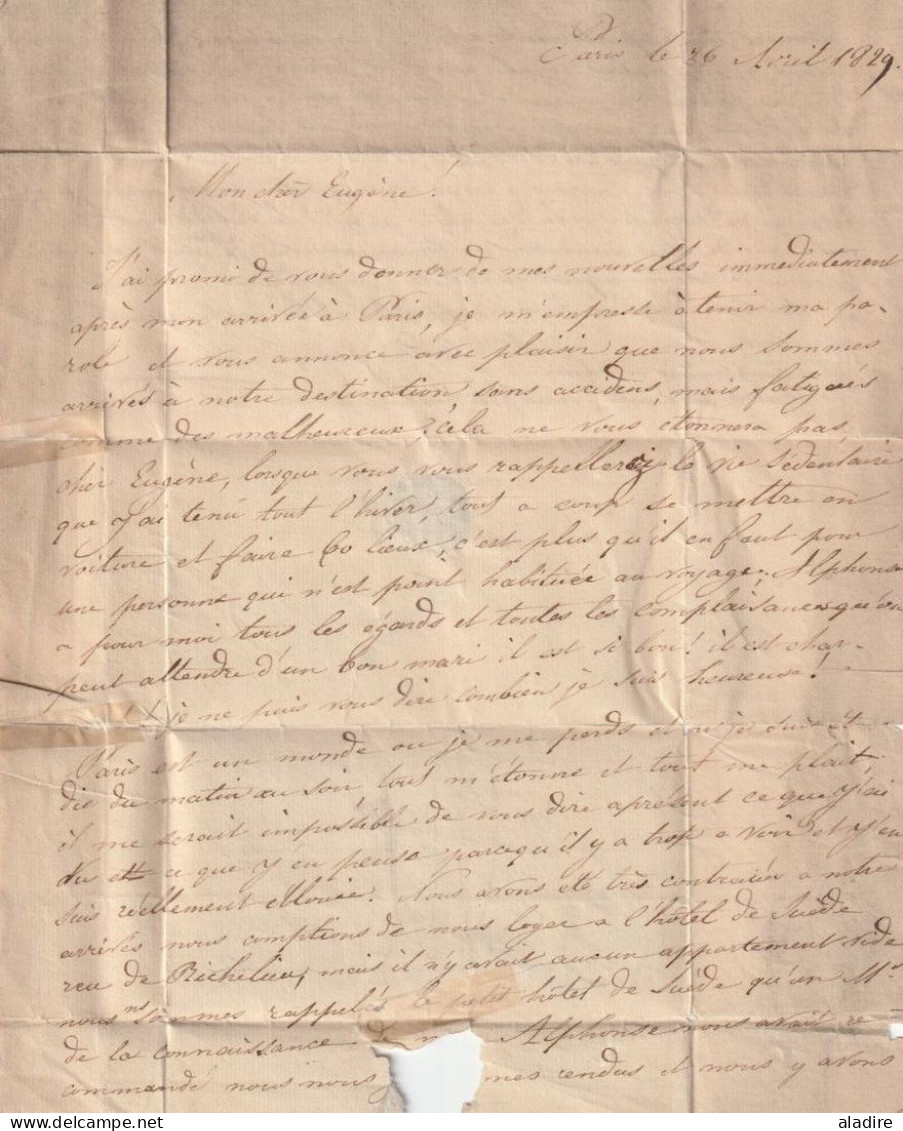 Paris le 26 Avril 1829.
Mon cher Eugène!
J'ai promi de vous donner de mes nouvelles immediatement
après mon arrivée à Paris, je m'empresse à tenir ma pa-
role et vous annonce avec plaisir que nous sommes
arrivés à notre destination sans accidens, mais fatigués
comme des malheureux, céla ne vous étonnera pas,
cher Eugène, lorsque vous vous rappellerez la vie sédentaire
que j'ai tenu tout l'hiver, tout a coup se mettre en
voiture et faire 60 lieus, c'est plus qu'il en faut pour
une personne qui n'est point habituée au voyage; Alphonse
a pour moi tous les égards et toutes les complaisances qu'on
peut attendre d'un bon mari il est si bon! il est char-
je ne puis vous dire combien je suis heureuse!
Paris est un monde ou je me perds et m'étour-
die du matin au soir tout m'étonne et tout me plait,
il me serait impossible de vous dire aprésent ce que j'ai
vu et ce que j'en pense parcequ'il y a trop a voir et j'en
suis réellement éblouie. Nous avons été très contrariés a notre
arrivés nous comptions de nous loger a l'hôtel de Suède
reu de Richelieu, mais il n'y avait aucun appartement vide
nous ns sommes rappelés le petit hôtel de Suéde qu'un Mr
de la connaissance de Alphonse nous avait re-
commandé nous nous mes rendus et nous y avons
aladire